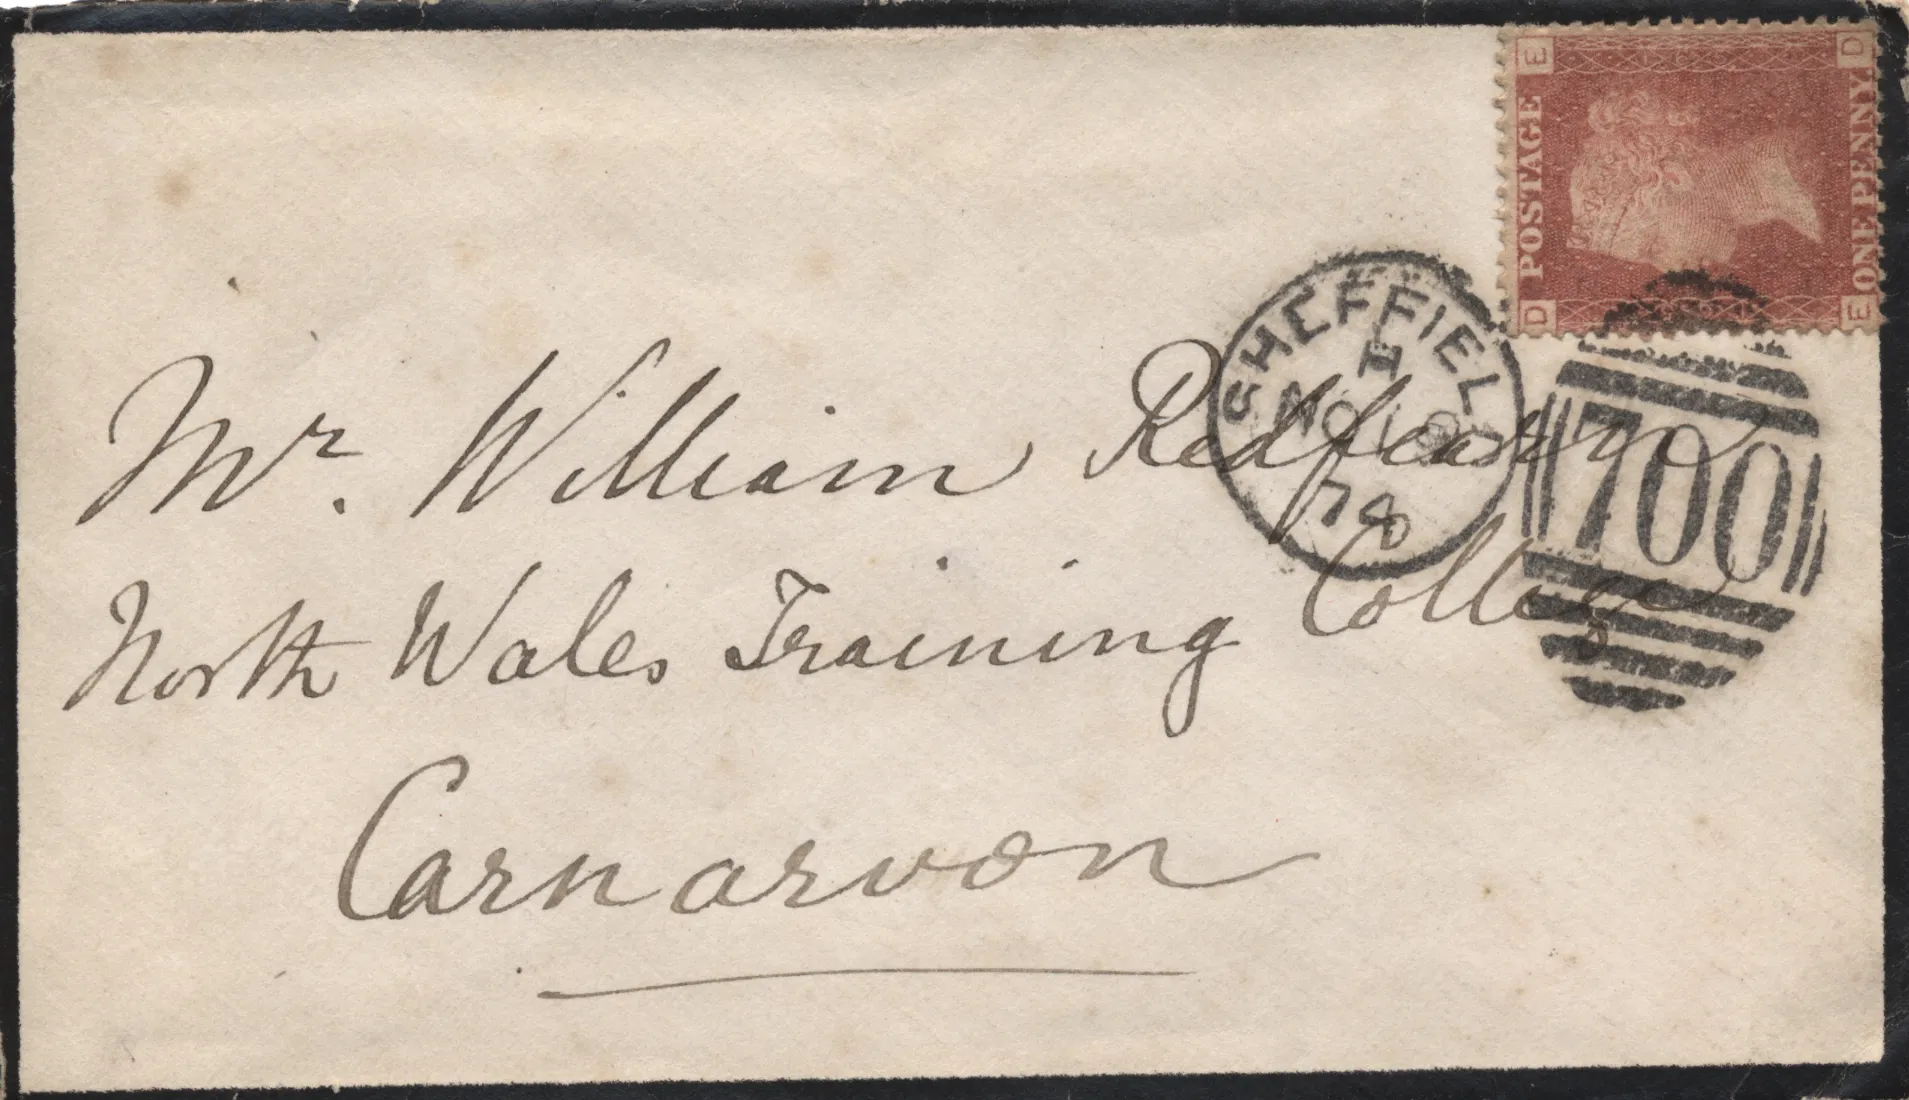 E D
POSTAGE
ONE PENNY
D E
SHEFFIELD
H
NO 18
78
700
Mr. William Redfearn
North Wales Training College
Carnarvon